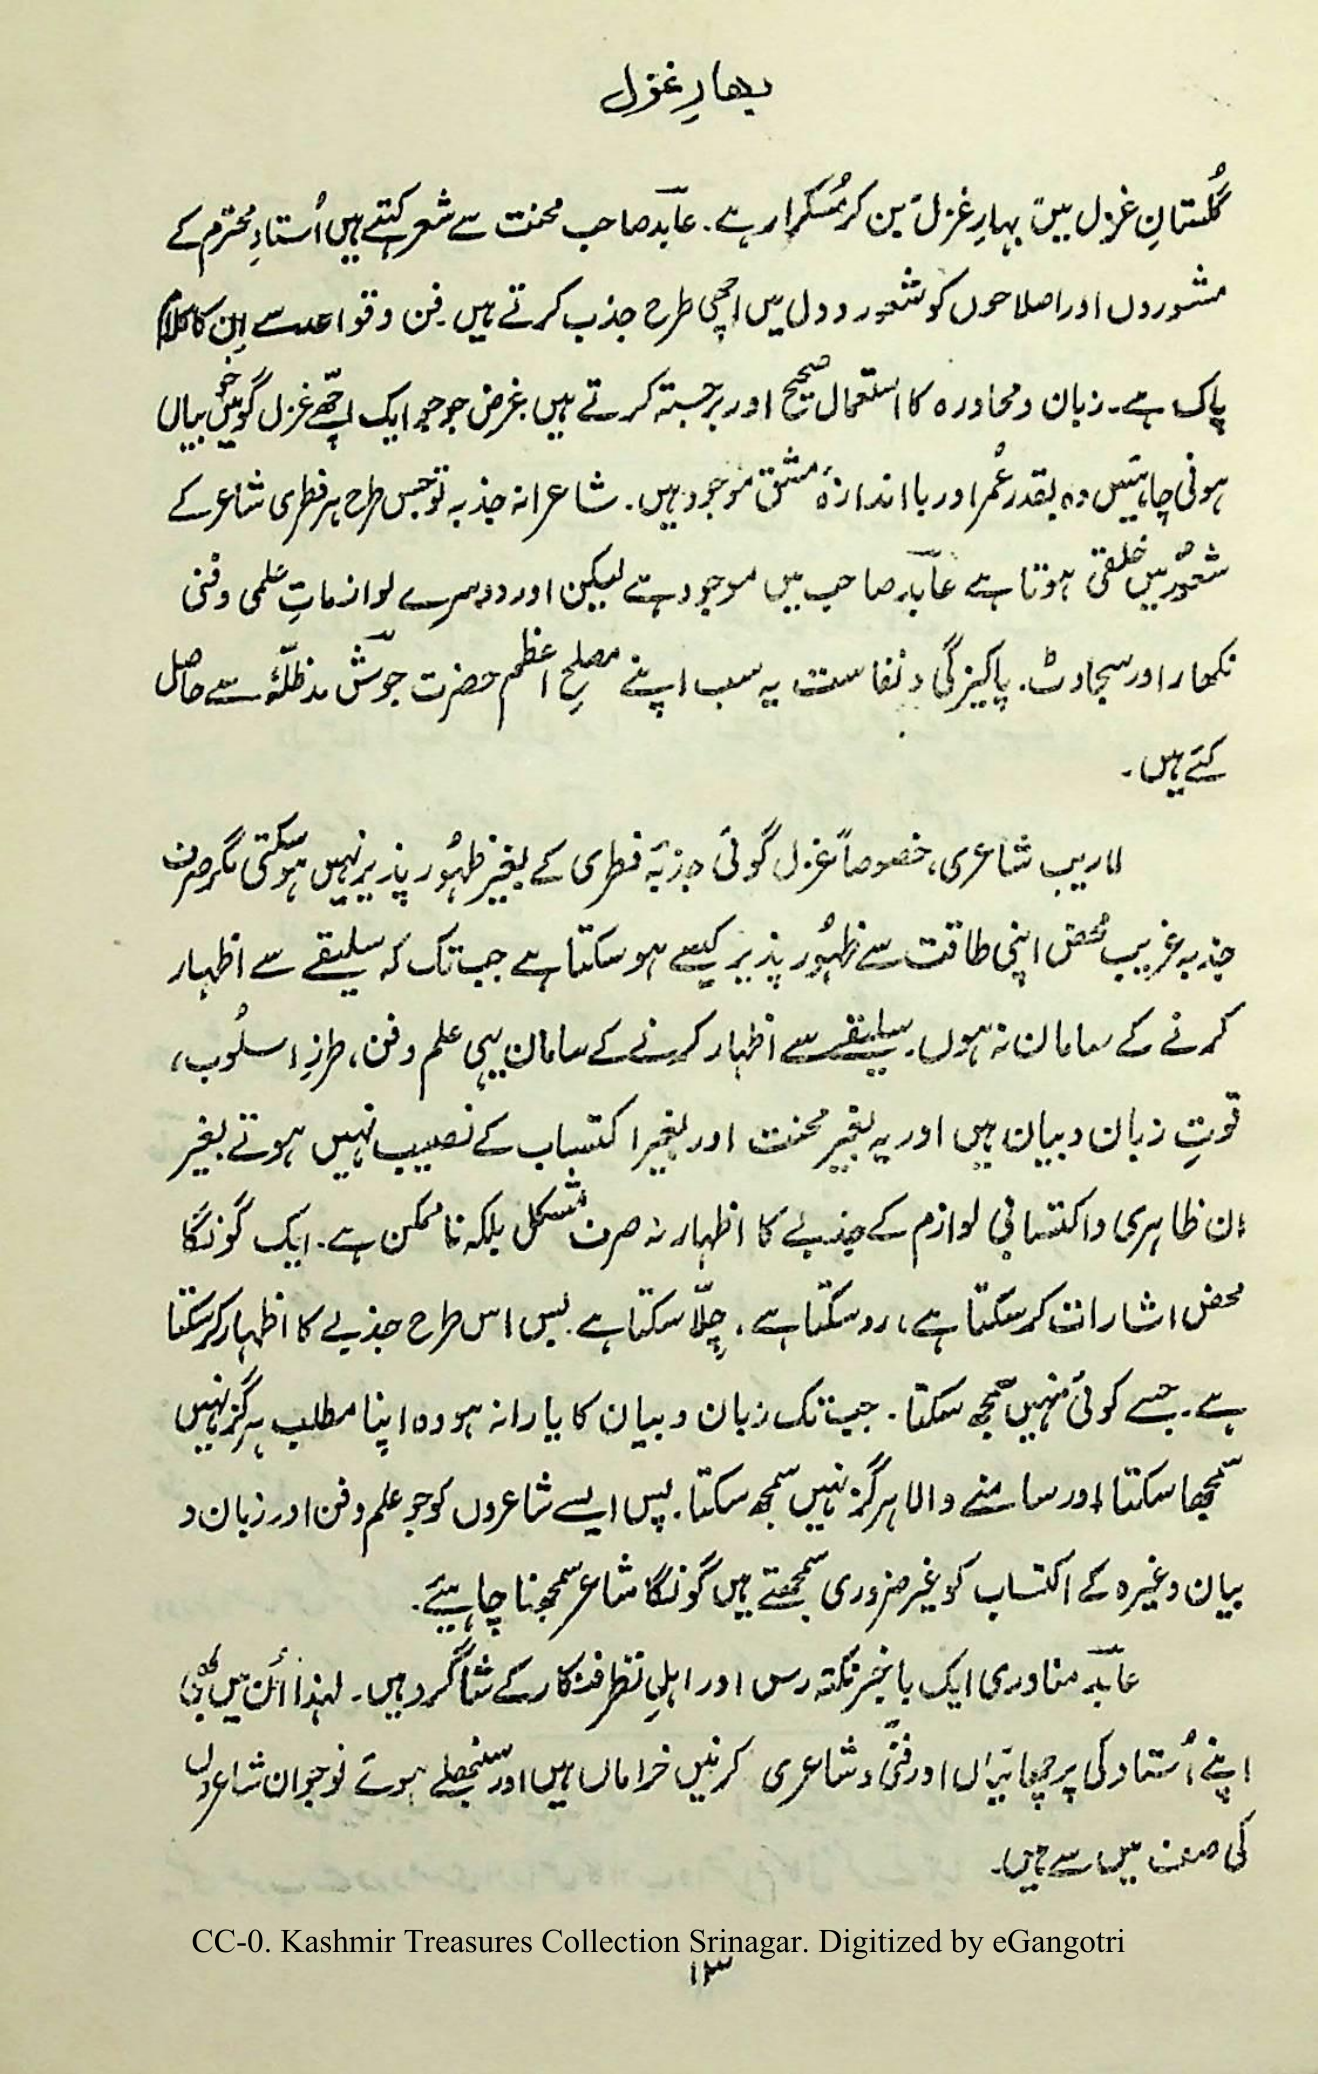 بهارِ غزل
گُلستانِ غزل میں "بہارِ غزل" بن کر مُسکرا رہے۔ عابدؔ صاحب محنت سے شعر کہتے ہیں اُستادِ محترم کے
مشوروں اور اصلاحوں کو شعور و دل میں اچھی طرح جذب کرتے ہیں۔ فن و قواعد سے اِن کا کلام
پاک ہے۔ زبان و محاورہ کا استعمال صحیح اور برجستہ کرتے ہیں۔ غرض جو جو ایک اچھّے غزل گو میں خوبیاں
ہونی چاہئیں وہ بقدرِ عُمر اور با اندازۂ مشق موجود ہیں۔ شاعرانہ جذبہ تو جس طرح ہر فطری شاعر کے
شعُور میں خلقی ہوتا ہے عابدؔ صاحب میں موجود ہے لیکن اور دوسرے لوازماتِ علمی و فنی
نکھار اور سجاوٹ۔ پاکیزگی و نفاست یہ سب اپنے مصلحِ اعظم حضرت جوشؔ مدظلّہٗ سے حاصل
کئے ہیں۔
لاریب شاعری، خصوصاً غزل گوئی جذبۂ فطری کے بغیر ظہُور پذیر نہیں ہو سکتی مگر صرف
جذبہ غریب محض اپنی طاقت سے ظہُور پذیر کیسے ہو سکتا ہے جب تک کہ سلیقے سے اظہار
کرنے کے سامان نہ ہوں۔ سلیقے سے اظہار کرنے کے سامان یہی علم و فن، طرزِ اسلُوب،
قوتِ زبان و بیان ہیں اور یہ بغیر محنت اور بغیر اکتساب کے نصیب نہیں ہوتے بغیر
ان ظاہری و اکتسابی لوازم کے جذبے کا اظہار نہ صرف مشکل بلکہ ناممکن ہے۔ ایک گونگا
محض اشارات کر سکتا ہے، رو سکتا ہے، چِلّا سکتا ہے۔ بس اس طرح جذبے کا اظہار کر سکتا
ہے۔ جسے کوئی نہیں سمجھ سکتا۔ جب تک زبان و بیان کا یارا نہ ہو وہ اپنا مطلب ہرگز نہیں
سمجھا سکتا اور سامنے والا ہرگز نہیں سمجھ سکتا۔ پس ایسے شاعروں کو جو علم و فن اور زبان و
بیان وغیرہ کے اکتساب کو غیر ضروری سمجھتے ہیں گونگا شاعر سمجھنا چاہیئے۔
عابدؔ مناوری ایک باخبر نکتہ رس اور اہلِ نظر فنکار کے شاگرد ہیں۔ لہٰذا اُن میں بھی
اپنے اُستاد کی پرچھائیاں اور فنّی و شاعری کرنیں خراماں ہیں اور سنبھلے ہوئے نوجوان شاعروں
کی صف میں سے ہیں۔
CC-0. Kashmir Treasures Collection Srinagar. Digitized by eGangotri
۱۳